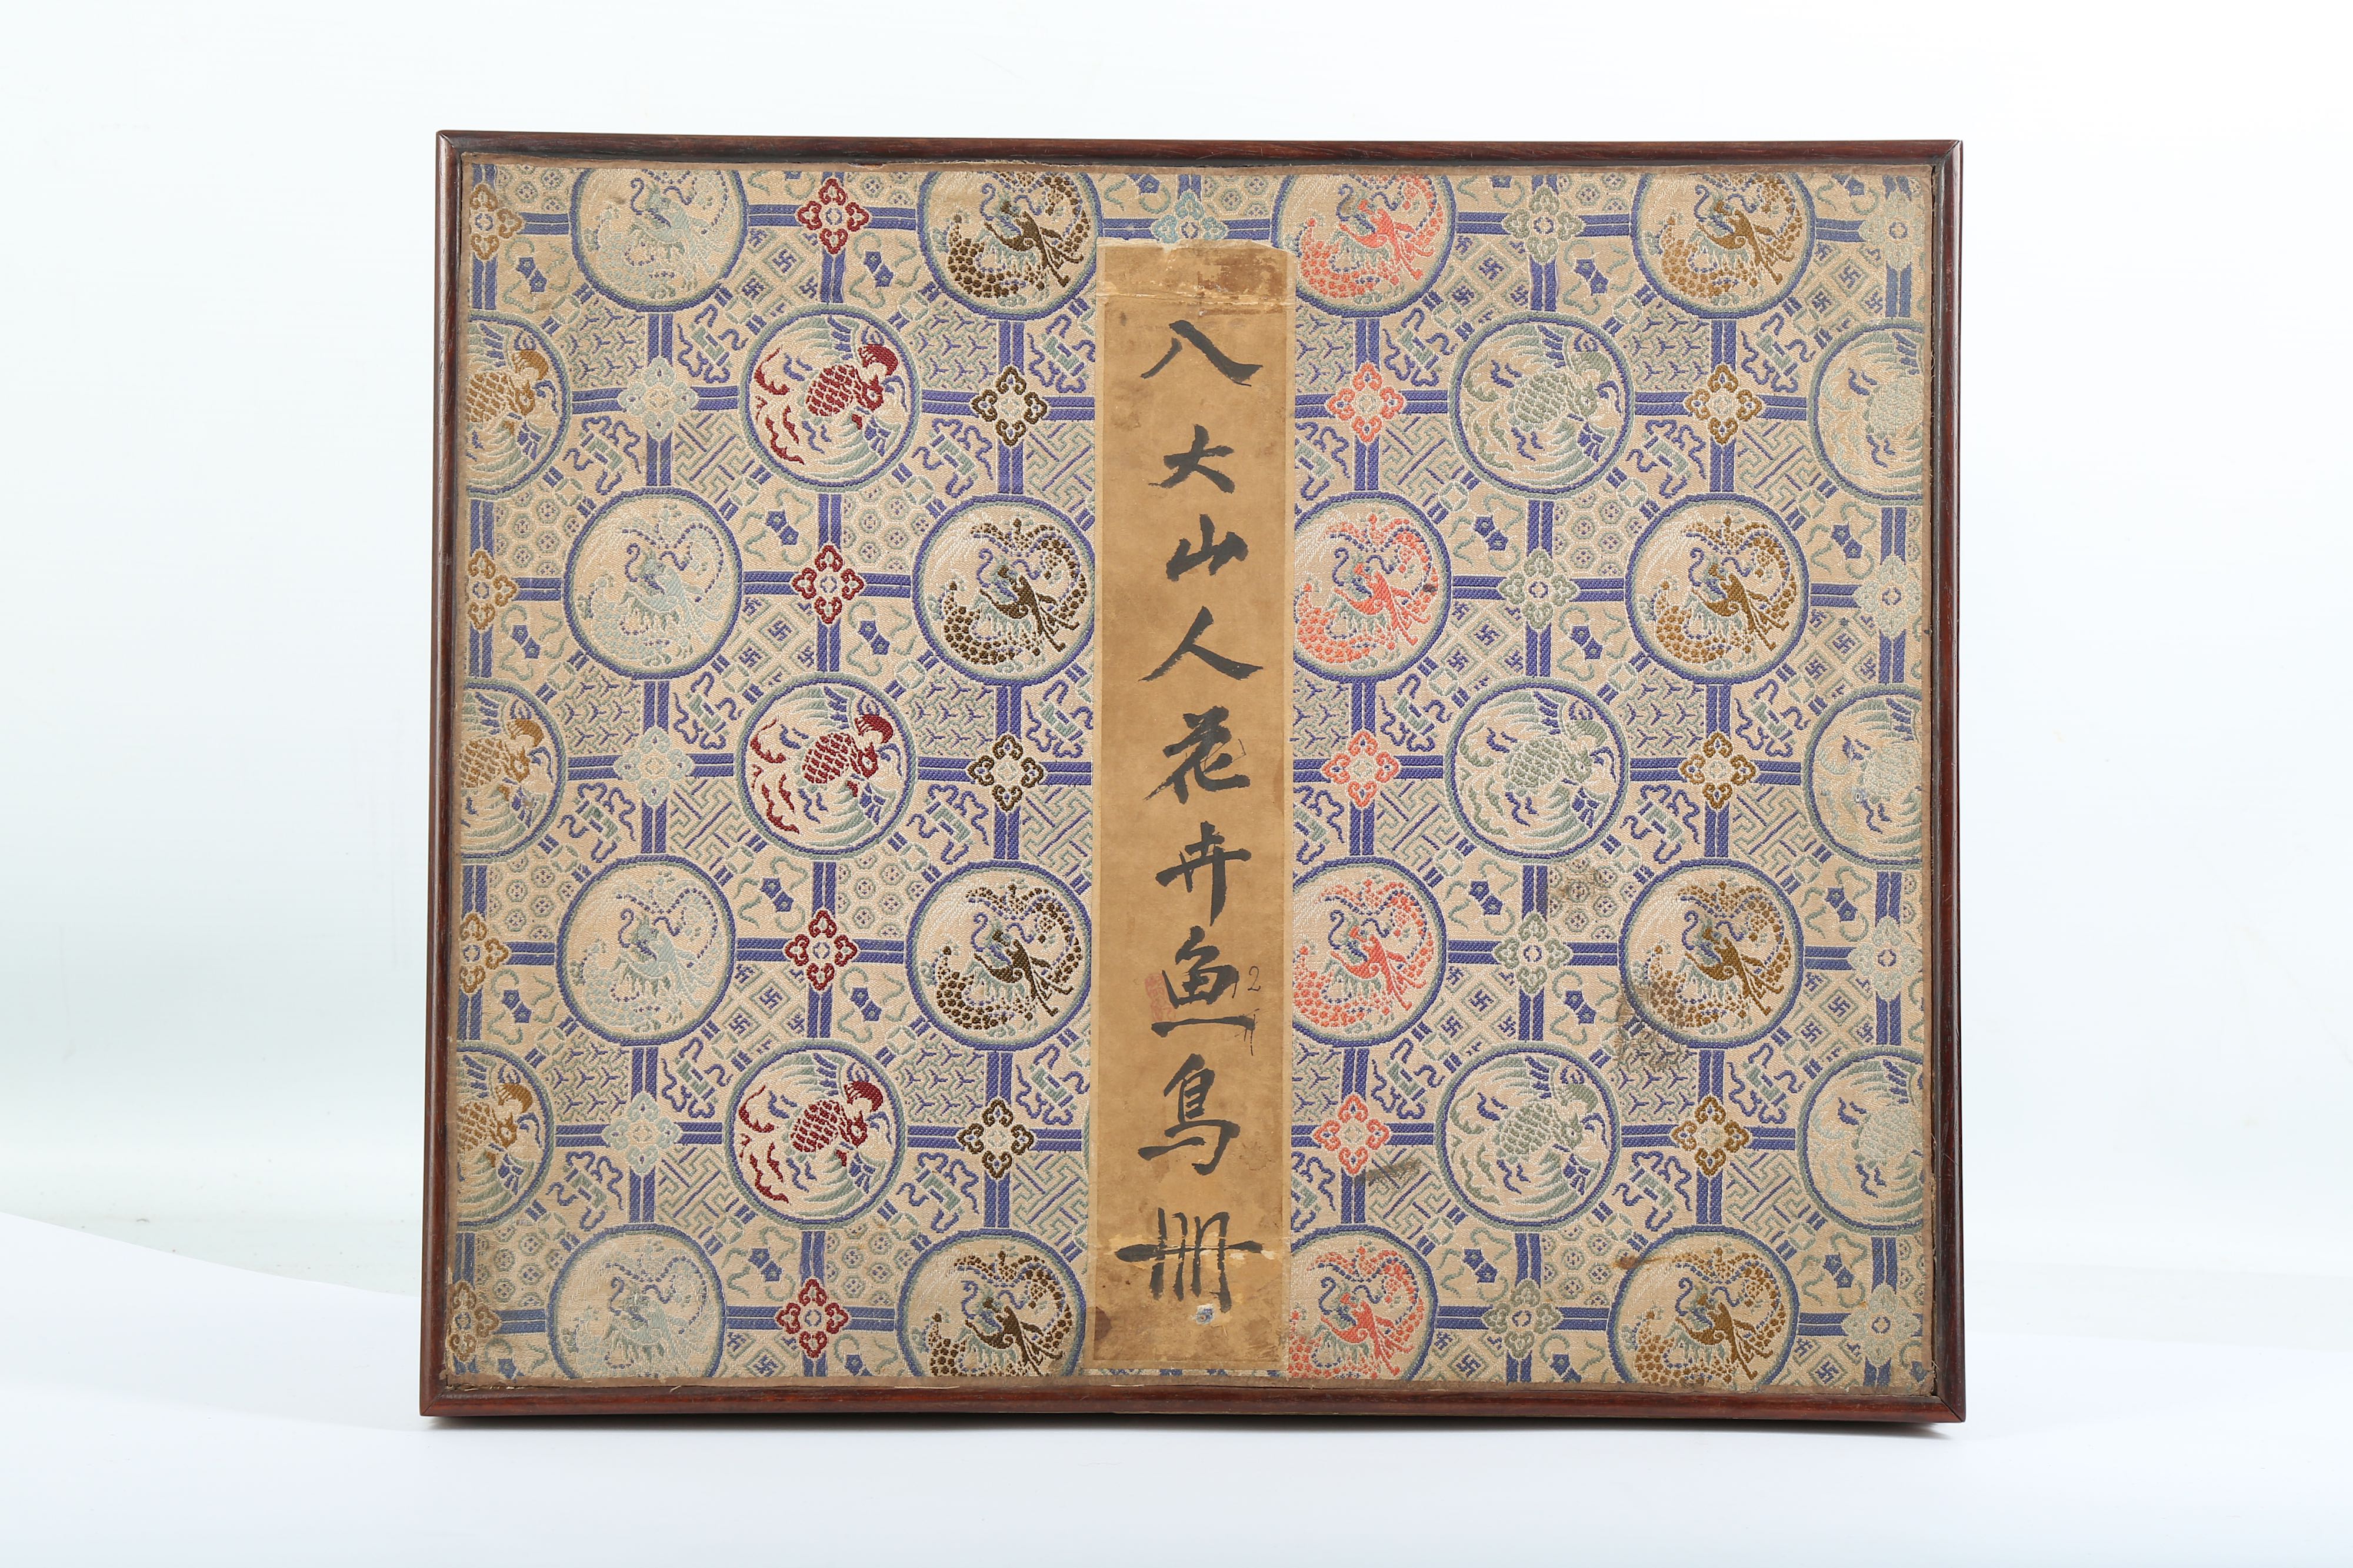 八大山人花卉魚鳥冊
12